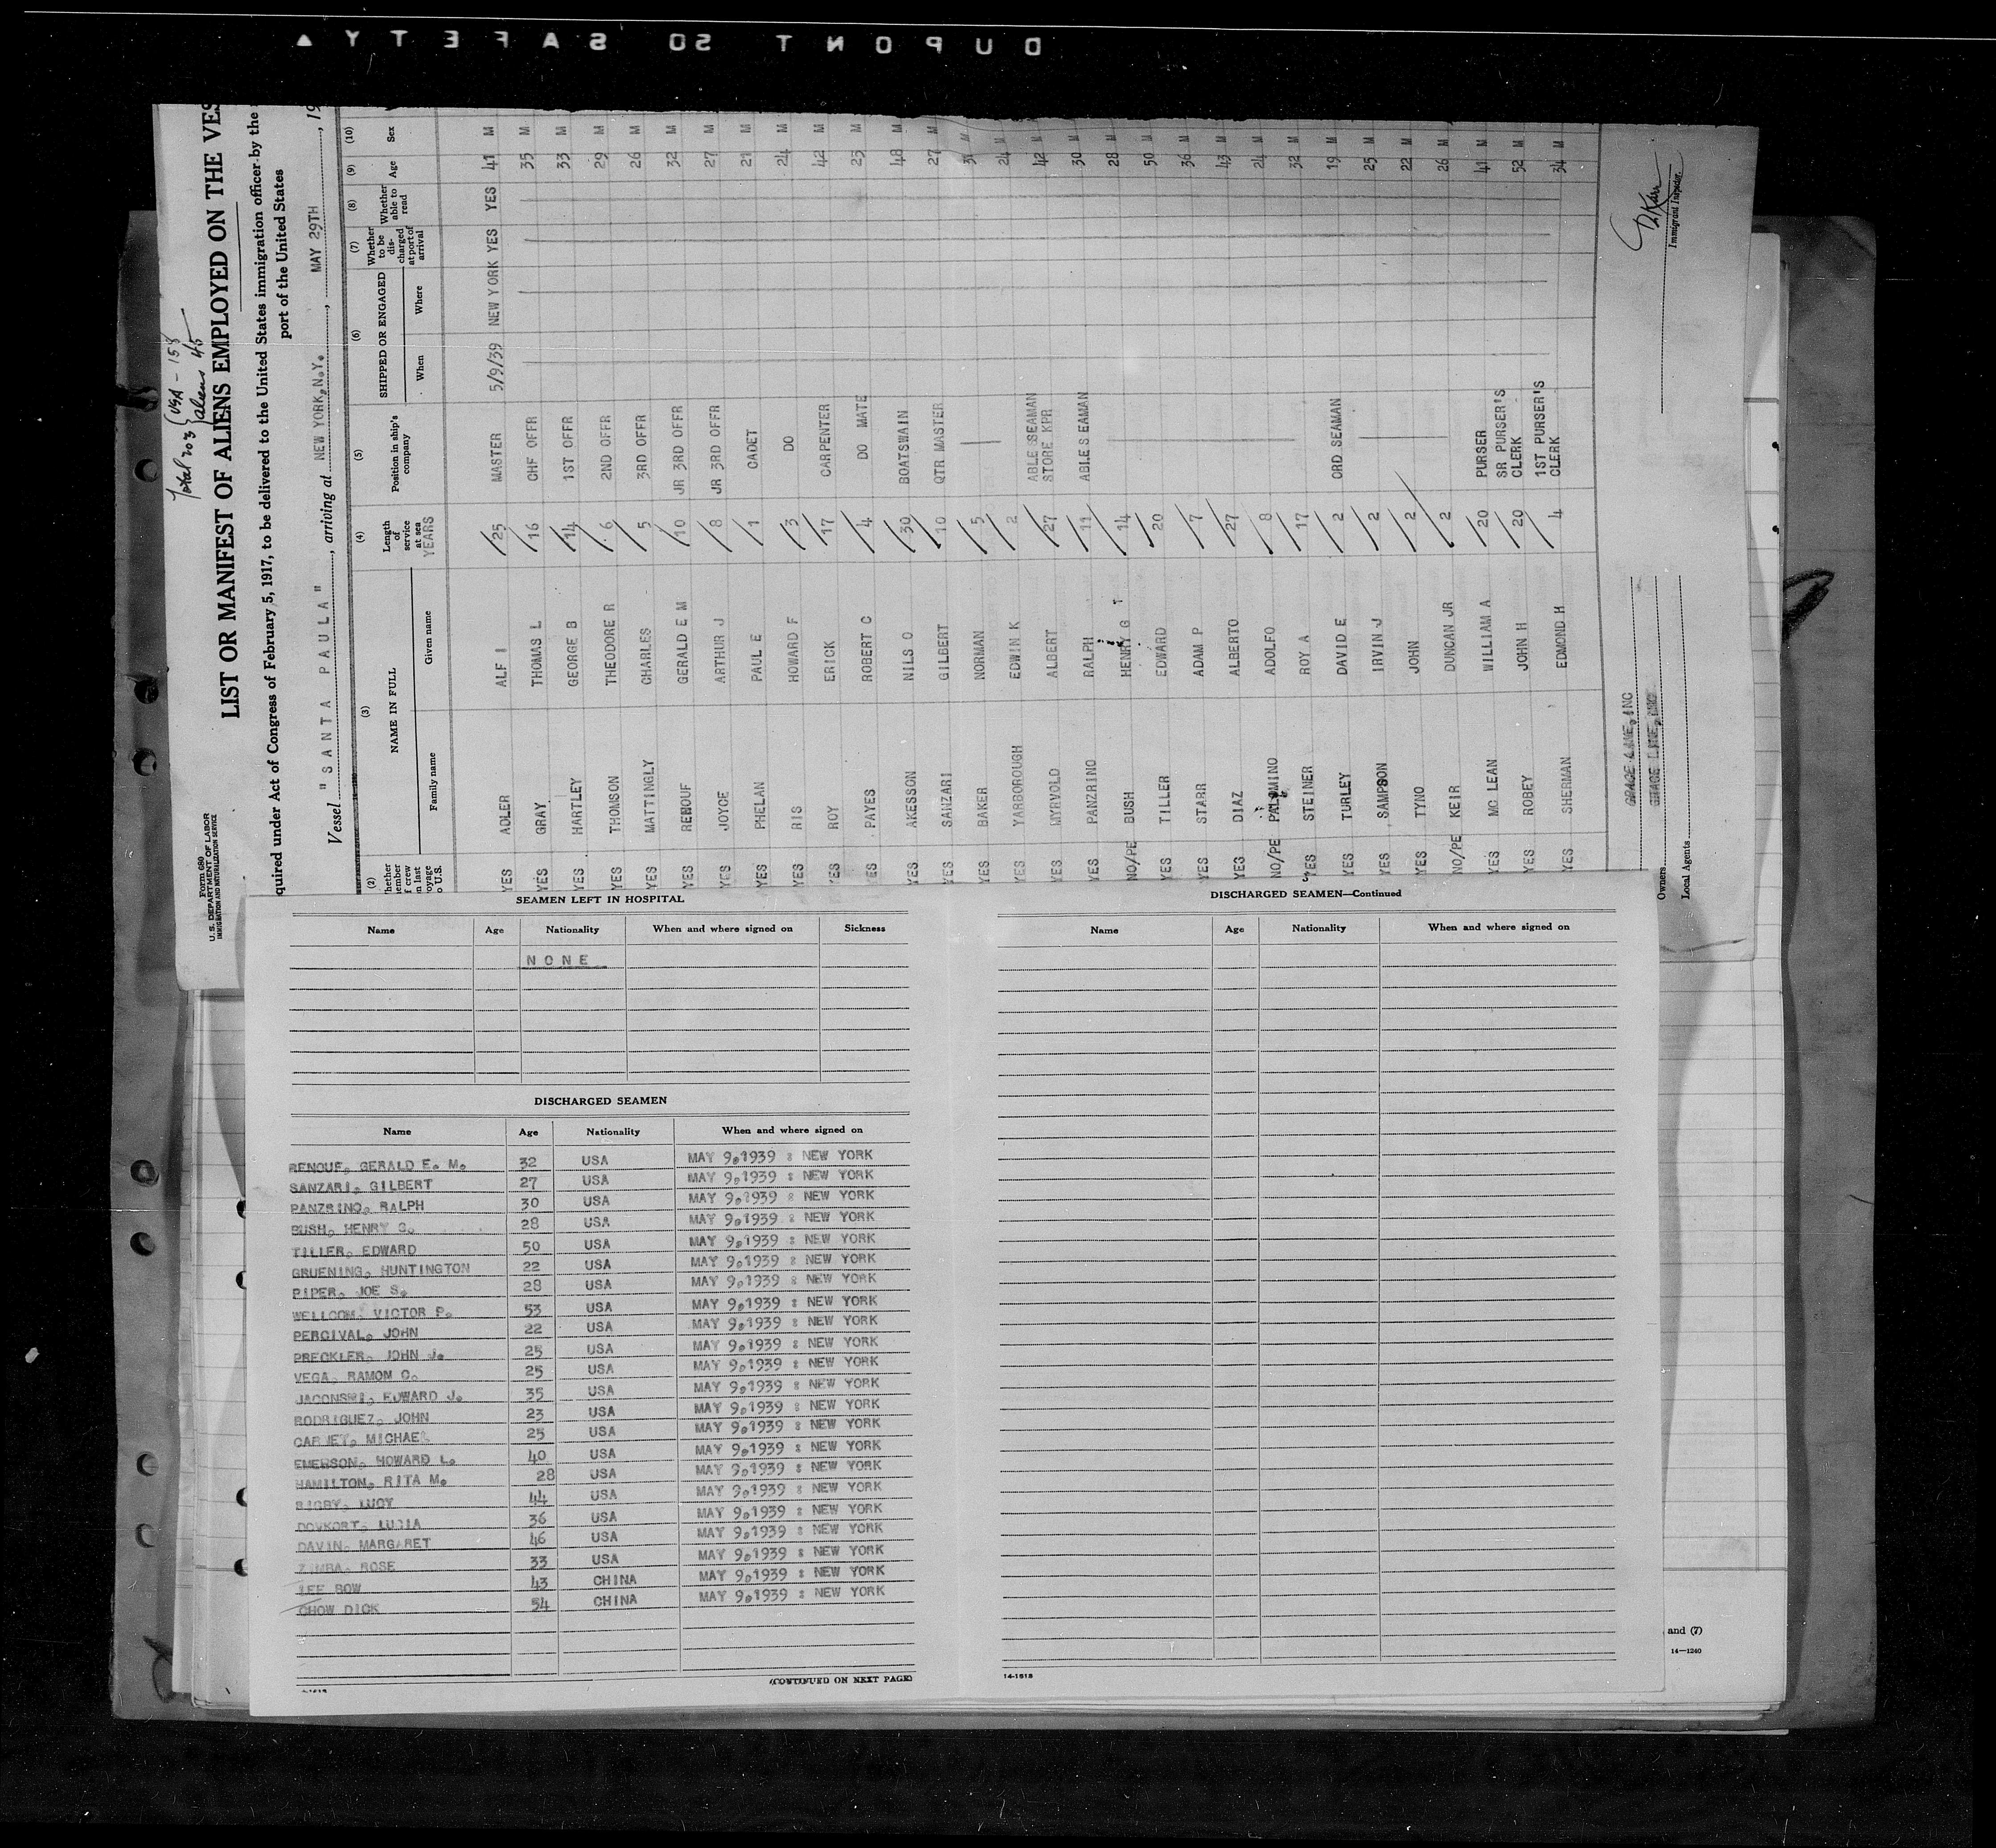 DUPONT SO SAFETY
Total 203 { USA - 158
aliens 45
Form 680
U. S. DEPARTMENT OF LABOR
IMMIGRATION AND NATURALIZATION SERVICE
LIST OR MANIFEST OF ALIENS EMPLOYED ON THE VES
quired under Act of Congress of February 5, 1917, to be delivered to the United States immigration officer by the
port of the United States
Vessel "SANTA PAULA", arriving at NEW YORK, N.Y., MAY 29TH, 19
(2) (3) (4) (5) (6) (7) (8) (9) (10)
hether ember f crew n last oyage o U.S. NAME IN FULL Length of service at sea YEARS Position in ship's company SHIPPED OR ENGAGED Whether to be discharged at port of arrival Whether able to read Age Sex
Family name Given name When Where
YES ADLER ALF I 25 MASTER 5/9/39 NEW YORK YES YES 41 M
YES GRAY THOMAS L 16 CHF OFFR 35 M
YES HARTLEY GEORGE B 14 1ST OFFR 33 M
YES THOMSON THEODORE R 6 2ND OFFR 29 M
YES MATTINGLY CHARLES 5 3RD OFFR 26 M
YES RENOUF GERALD E M 10 JR 3RD OFFR 32 M
YES JOYCE ARTHUR J 8 JR 3RD OFFR 27 M
YES PHELAN PAUL E 1 CADET 21 M
YES RIS HOWARD F 3 DO 24 M
YES ROY ERICK 17 CARPENTER 42 M
YES PAYES ROBERT C 4 DO MATE 23 M
YES AKESSON NILS O 30 BOATSWAIN 48 M
YES SANZARI GILBERT 10 QTR MASTER 27 M
YES BAKER NORMAN 5 31 M
YES YARBOROUGH EDWIN K 2 24 M
YES MYRVOLD ALBERT 27 ABLE SEAMAN STORE KPR 42 M
YES PANZRINO RALPH 11 ABLE SEAMAN 30 M
NO/PE BUSH HENRY G T 14 28 M
YES TILLER EDWARD 20 50 M
YES STARR ADAM P 7 36 M
YES DIAZ ALBERTO 27 43 M
NO/PE PALOMINO ADOLFO 8 24 M
YES STEINER ROY A 17 32 M
YES TURLEY DAVID E 2 ORD SEAMAN 19 M
YES SAMPSON IRVIN J 2 25 M
YES TYNO JOHN 2 22 M
NO/PE KEIR DUNCAN JR 2 26 M
YES MC LEAN WILLIAM A 20 PURSER 41 M
YES ROBEY JOHN H 20 SR PURSER'S CLERK 52 M
YES SHERMAN EDMOND H 4 1ST PURSER'S CLERK 34 M
Owners GRACE LINE, INC
Local Agents GRACE LINE, INC
Immigrant Inspector.
SEAMEN LEFT IN HOSPITAL
Name Age Nationality When and where signed on Sickness
NONE
DISCHARGED SEAMEN
Name Age Nationality When and where signed on
RENOUF, GERALD E. M. 32 USA MAY 9,1939 : NEW YORK
SANZARI, GILBERT 27 USA MAY 9,1939 : NEW YORK
PANZRINO, RALPH 30 USA MAY 9,1939 : NEW YORK
BUSH, HENRY G. 28 USA MAY 9,1939 : NEW YORK
TILLER, EDWARD 50 USA MAY 9,1939 : NEW YORK
GRUENING, HUNTINGTON 22 USA MAY 9,1939 : NEW YORK
PIPER, JOE S. 28 USA MAY 9,1939 : NEW YORK
WELLCOM, VICTOR P. 53 USA MAY 9,1939 : NEW YORK
PERCIVAL, JOHN 22 USA MAY 9,1939 : NEW YORK
PRECKLER, JOHN J. 25 USA MAY 9,1939 : NEW YORK
VEGA, RAMON O. 25 USA MAY 9,1939 : NEW YORK
JACONSKI, EDWARD J. 35 USA MAY 9,1939 : NEW YORK
RODRIGUEZ, JOHN 23 USA MAY 9,1939 : NEW YORK
CARNEY, MICHAEL 25 USA MAY 9,1939 : NEW YORK
EMERSON, HOWARD L. 40 USA MAY 9,1939 : NEW YORK
HAMILTON, RITA M. 28 USA MAY 9,1939 : NEW YORK
RIGBY, LUCY 44 USA MAY 9,1939 : NEW YORK
DOVKORT, LUJIA 36 USA MAY 9,1939 : NEW YORK
DAVIN, MARGARET 46 USA MAY 9,1939 : NEW YORK
ZIMBA, ROSE 33 USA MAY 9,1939 : NEW YORK
LEE BOW 43 CHINA MAY 9,1939 : NEW YORK
CHOW DICK 54 CHINA MAY 9,1939 : NEW YORK
(CONTINUED ON NEXT PAGE)
DISCHARGED SEAMEN—Continued
Name Age Nationality When and where signed on
14-1818
and (7)
14—1240